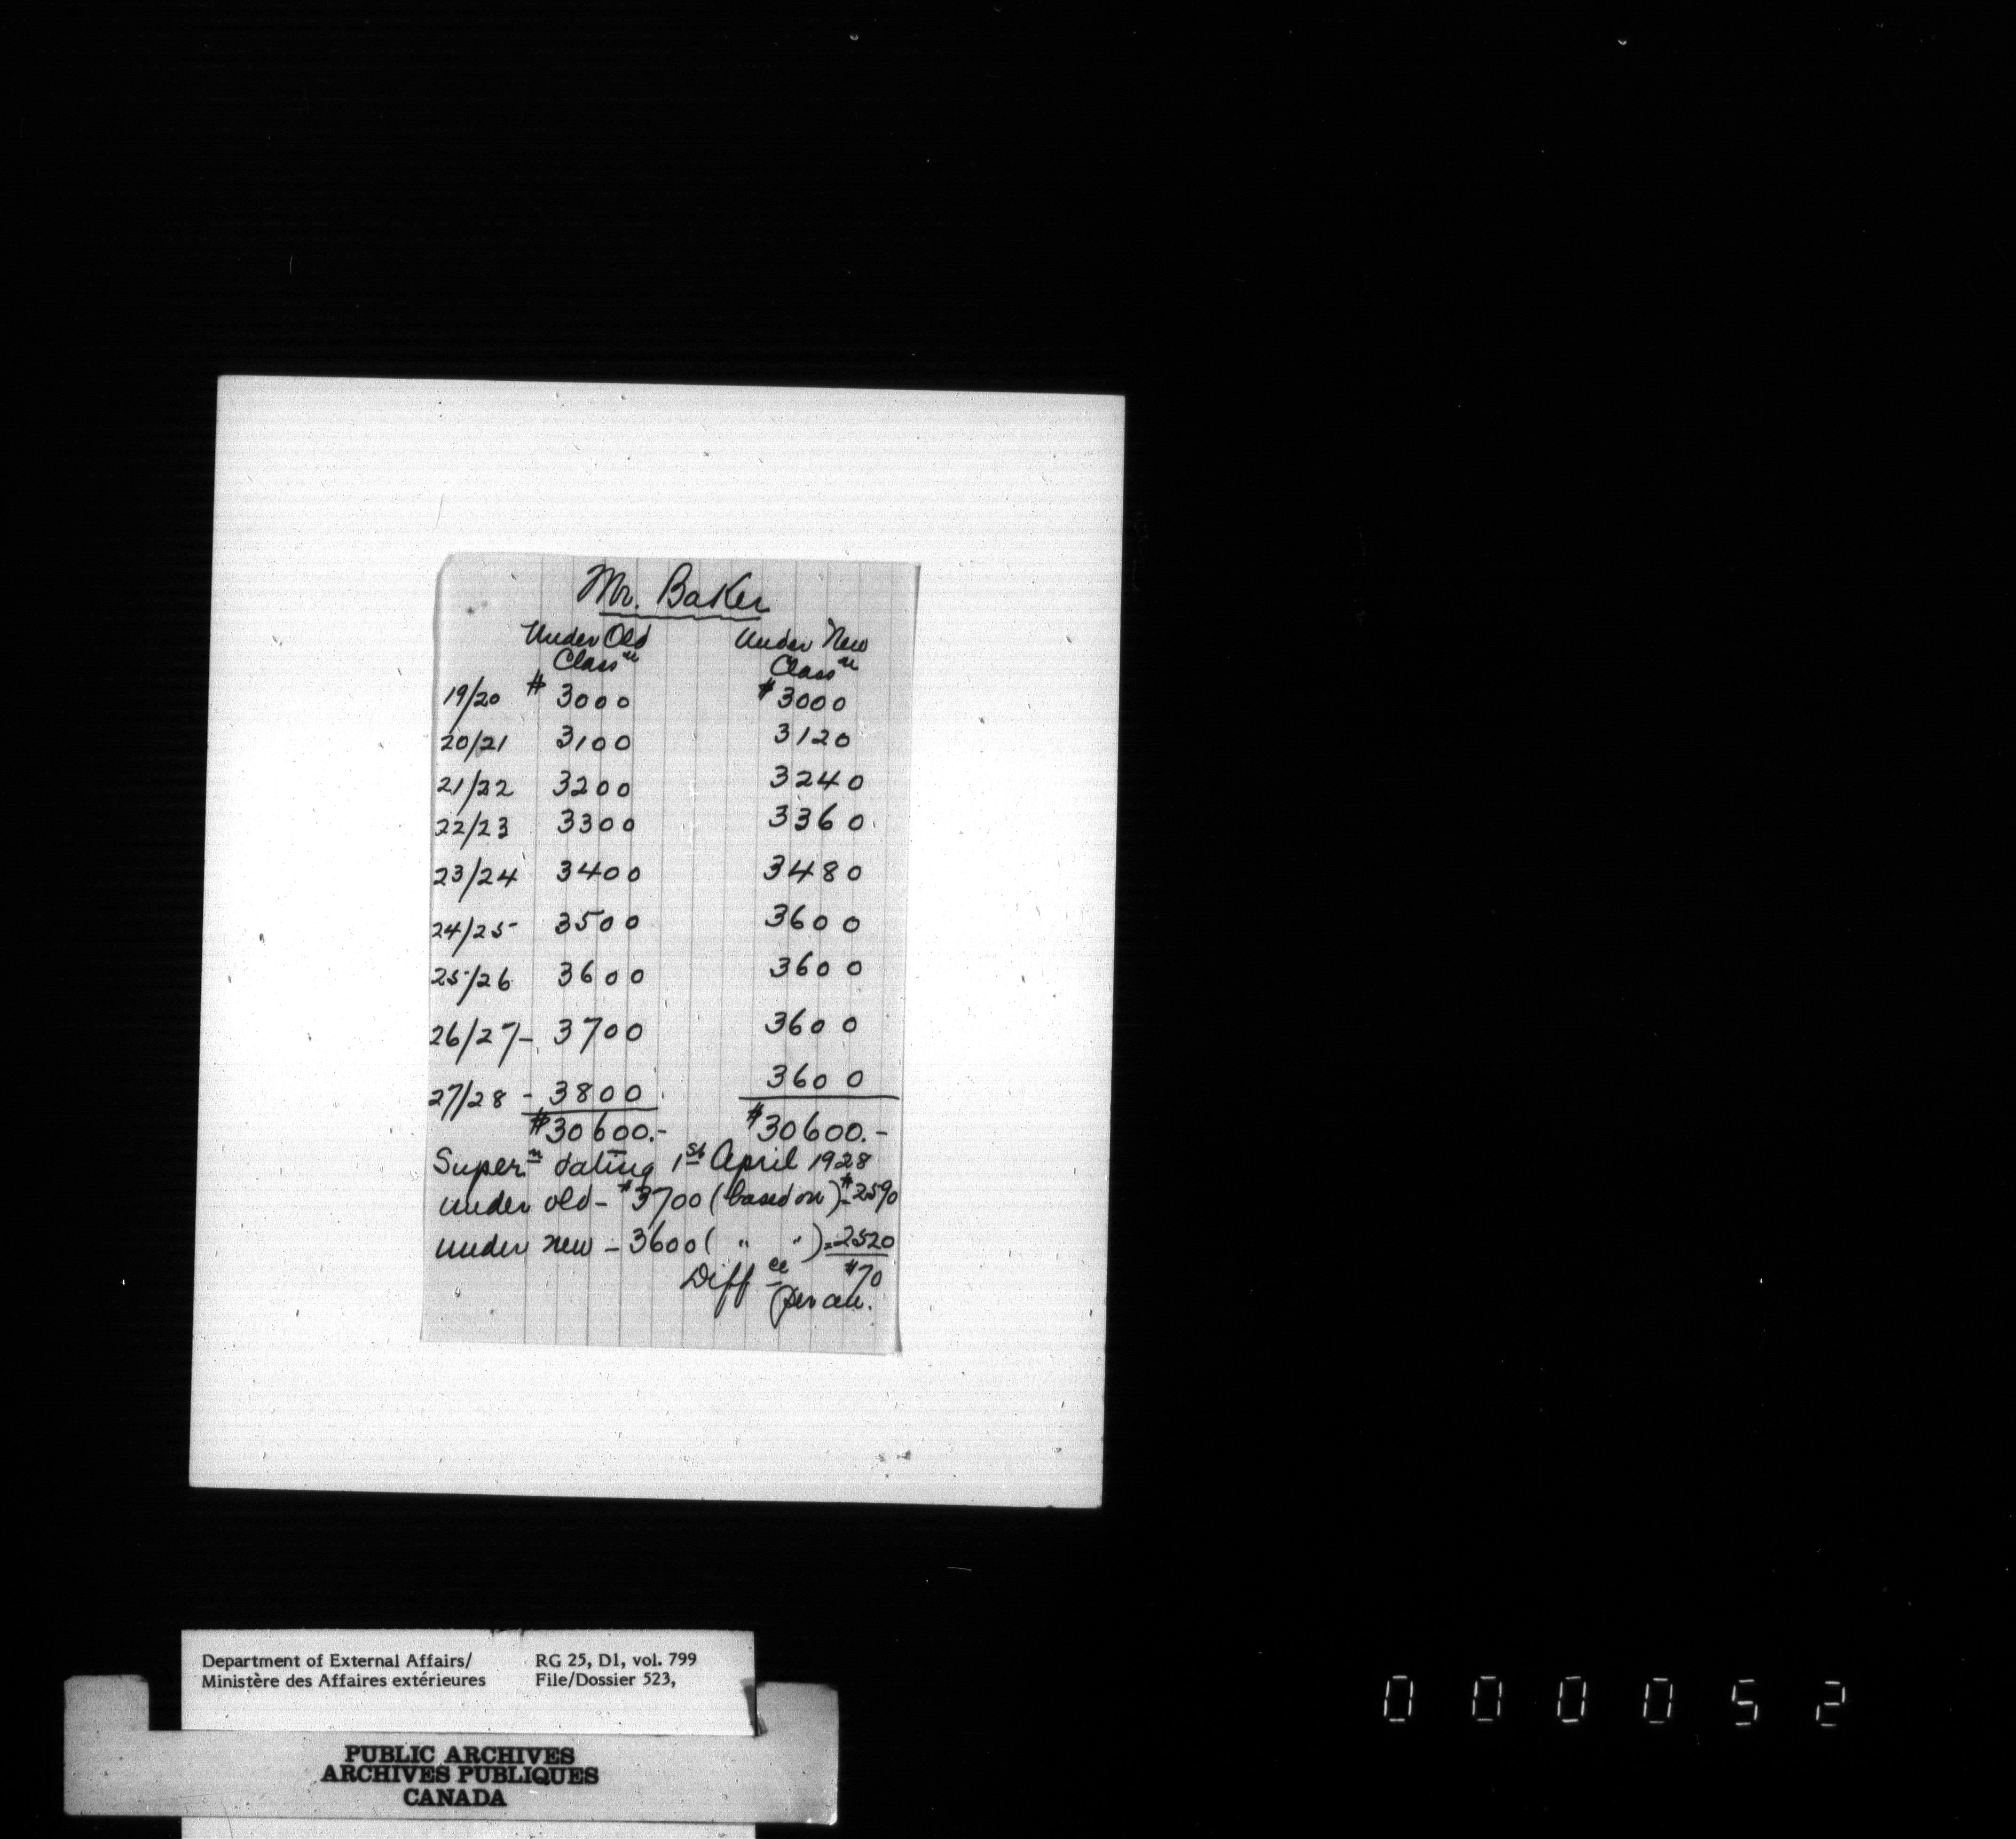 Mr. Baker
Under Old Under New
Classn Classn
19/20 $ 3000 $ 3000
20/21 3100 3120
21/22 3200 3240
22/23 3300 3360
23/24 3400 3480
24/25 3500 3600
25/26 3600 3600
26/27 - 3700 3600
27/28 - 3800 3600
$30600.- $30600.-
Supern dating 1st April 1928
under old - $3700 (based on) = $2590
under new - 3600 ( " " ) = 2520
Diffce $70
per an.
Department of External Affairs/ RG 25, D1, vol. 799
Ministère des Affaires extérieures File/Dossier 523,
PUBLIC ARCHIVES
ARCHIVES PUBLIQUES
CANADA
000052